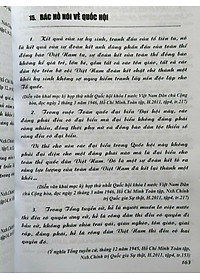 15. BÁC HỒ NÓI VỀ QUỐC HỘI
1. Kết quả của sự hy sinh, tranh đấu của tổ tiên ta, nó
là kết quả của sự đoàn kết anh dũng phấn đấu của toàn thể
đồng bào Việt Nam ta, sự đoàn kết của toàn thể đồng bào
không kể già trẻ, lớn bé, gồm tất cả các tôn giáo, tất cả các
dân tộc trên bờ cõi Việt Nam đoàn kết chặt chẽ thành một
khối hy sinh không sợ nguy hiểm tranh lấy nền độc lập cho
Tổ quốc.
(Diễn văn khai mạc kỳ họp thứ nhất Quốc hội khóa I nước Việt Nam Dân chủ Cộng
hòa, đọc ngày 2 tháng 3 năm 1946, Hồ Chí Minh Toàn tập,
Nxb.Chính trị Quốc gia Sự thật, H.2011, tập4, tr.216)
2. Trong cuộc Toàn quốc đại biểu Đại hội này, các
đảng phái đều có đại biểu mà đại biểu không đảng phái
cũng nhiều, đồng thời phụ nữ và đồng bào dân tộc thiểu số
cũng đều có đại biểu.
Vì thế cho nên các đại biểu trong Quốc hội này không
phải đại diện cho một đảng phái nào mà là đại biểu cho
toàn thể quốc dân Việt Nam. Đó là một sự đoàn kết tỏ ra
rằng lực lượng của toàn dân Việt Nam đã kết lại thành một
khối.
(Diễn văn khai mạc kỳ họp thứ nhất Quốc hội khóa I nước Việt Nam
Dân chủ Cộng hòa, đọc ngày 2 tháng 3 năm 1946, Hồ Chí Minh Toàn
tập, Nxb.Chính trị Quốc gia Sự thật, H.2011, tập4, tr.217)
3. Trong Tổng tuyển cử, hễ là người muốn lo việc nước
thì đều có quyền ra ứng cử, hễ là công dân thì đều có quyền đi
bầu cử, không phân chia trai gái, giàu nghèo, tôn giáo, giai
cấp, đảng phái, hễ là công dân Việt Nam thì đều có hai
quyền đó.
(Ý nghĩa Tổng tuyển cử, tháng 12 năm 1945, Hồ Chí Minh Toàn tập,
Nxb.Chính trị Quốc gia Sự thật, H.2011, tập4, tr.153)
163